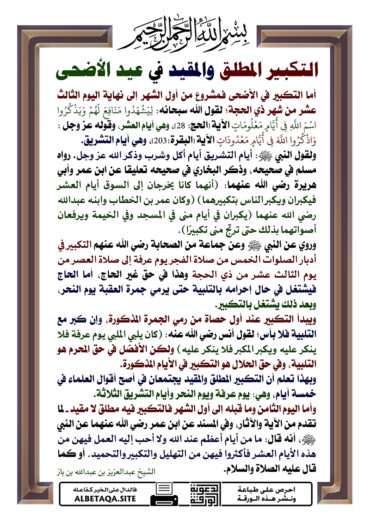 بسم الله الرحمن الرحيم
التكبير المطلق والمقيد في عيد الأضحى
أما التكبير في الأضحى فمشروع من أول الشهر إلى نهاية اليوم الثالث
عشر من شهر ذي الحجة؛ لقول الله سبحانه: لِيَشْهَدُوا مَنَافِعَ لَهُمْ وَيَذْكُرُوا
اسْمَ اللَّهِ فِي أَيَّامٍ مَعْلُومَاتٍ الآية [الحج: 28]، وهي أيام العشر، وقوله عز وجل:
وَاذْكُرُوا اللَّهَ فِي أَيَّامٍ مَعْدُودَاتٍ الآية [البقرة: 203]، وهي أيام التشريق.
ولقول النبي ﷺ: أيام التشريق أيام أكل وشرب وذكر الله عز وجل. رواه
مسلم في صحيحه، وذكر البخاري في صحيحه تعليقا عن ابن عمر وأبي
هريرة رضي الله عنهما: (أنهما كانا يخرجان إلى السوق أيام العشر
فيكبران ويكبر الناس بتكبيرهما) (وكان عمر بن الخطاب وابنه عبدالله
رضي الله عنهما (يكبران في أيام منى في المسجد وفي الخيمة ويرفعان
أصواتهما بذلك حتى ترتج منى تكبيرًا).
وروي عن النبي ﷺ وعن جماعة من الصحابة رضي الله عنهم التكبير في
أدبار الصلوات الخمس من صلاة الفجر يوم عرفة إلى صلاة العصر من
يوم الثالث عشر من ذي الحجة وهذا في حق غير الحاج، أما الحاج
فيشتغل في حال إحرامه بالتلبية حتى يرمي جمرة العقبة يوم النحر،
وبعد ذلك يشتغل بالتكبير.
ويبدأ التكبير عند أول حصاة من رمي الجمرة المذكورة، وإن كبر مع
التلبية فلا بأس؛ لقول أنس رضي الله عنه: (كان يلبي الملبي يوم عرفة فلا
ينكر عليه ويكبر المكبر فلا ينكر عليه) ولكن الأفضل في حق المحرم هو
التلبية، وفي حق الحلال هو التكبير في الأيام المذكورة.
وبهذا تعلم أن التكبير المطلق والمقيد يجتمعان في أصح أقوال العلماء في
خمسة أيام، وهي: يوم عرفة ويوم النحر وأيام التشريق الثلاثة.
وأما اليوم الثامن وما قبله إلى أول الشهر فالتكبير فيه مطلق لا مقيد ـ لما
تقدم من الآية والآثار، وفي المسند عن ابن عمر رضي الله عنهما عن النبي
ﷺ، أنه قال: ما من أيام أعظم عند الله ولا أحب إليه العمل فيهن من
هذه الأيام العشر فأكثروا فيهن من التهليل والتكبير والتحميد. أو كما
قال عليه الصلاة والسلام.
الشيخ عبدالعزيز بن عبدالله بن باز
احرص على طباعة
ونشر هذه الورقة
الدعوية
الورقة
فالدال على الخير كفاعله
ALBETAQA.SITE